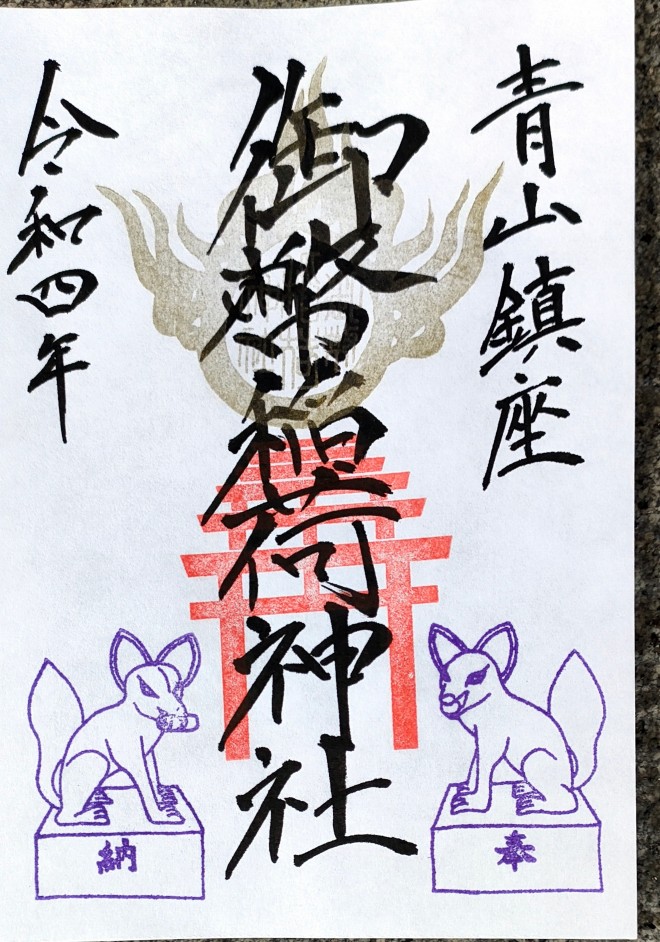 青山鎮座
御幣稲荷神社
令和四年
奉
納